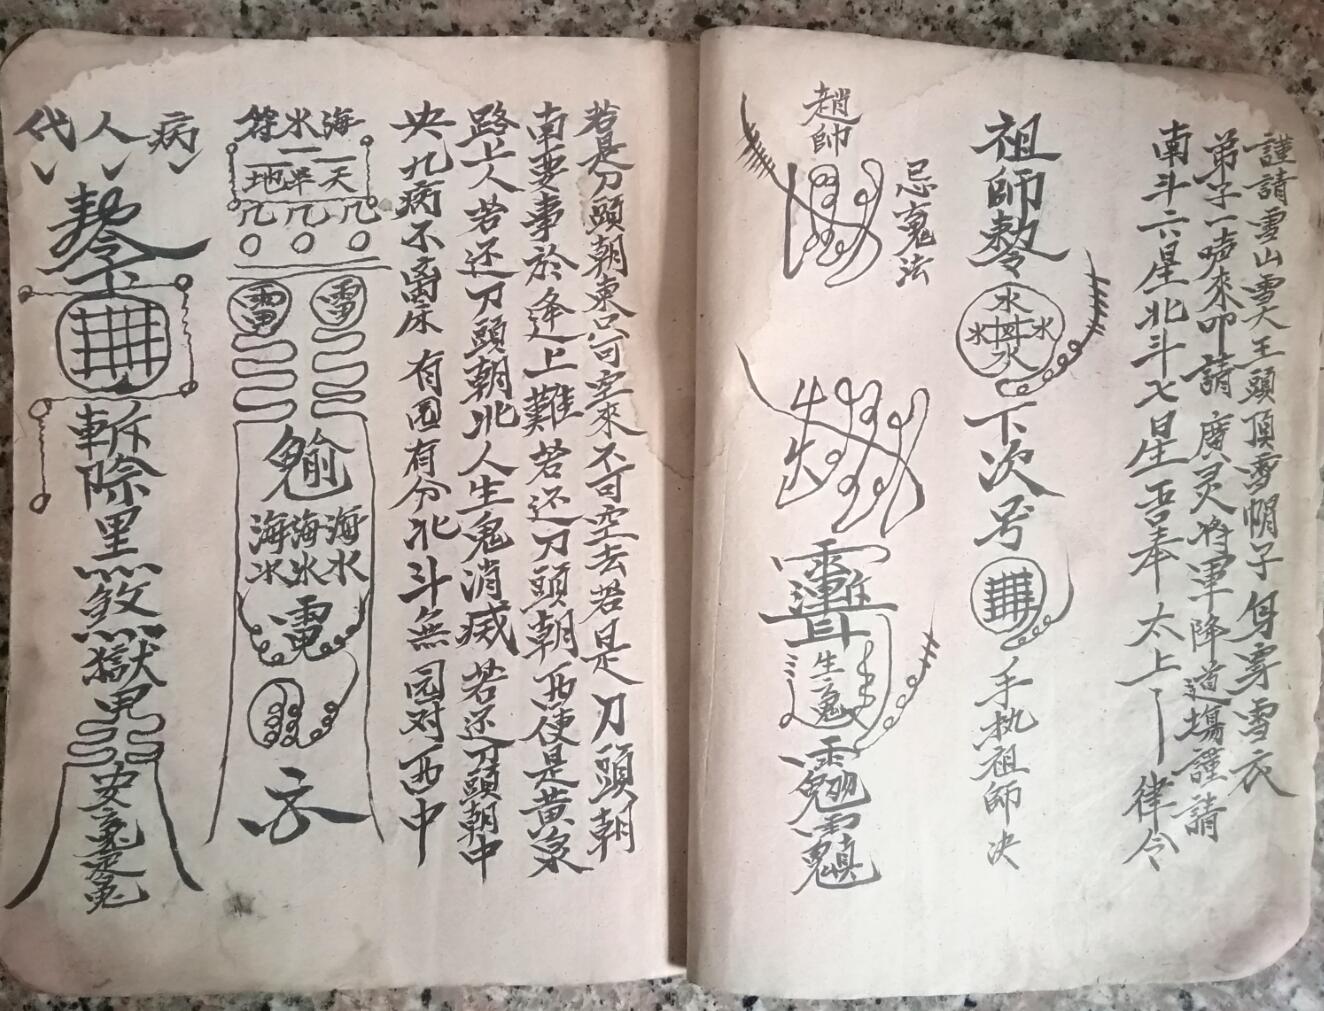 謹請雪山雪大王頭頂雪帽子身穿雪衣
弟子一声來叩請廣灵将軍降道塲謹請
南斗六星北斗七星吾奉太上律令
祖師勅令
水
水 水
水
下次号
手执祖師决
忌寃法
趙帥
生寃
若是刀頭朝東只可空來不可空去若是刀頭朝
南要事於逢上難若还刀頭朝西便是黄泉
路上人若还刀頭朝北人生鬼消威若还刀頭朝中
央九病不离床有因有分北斗無园对西中
海水符
天平地
雷 雷
海海海
水水水
雷
病人代
勅令
斬除黑煞獄鬼